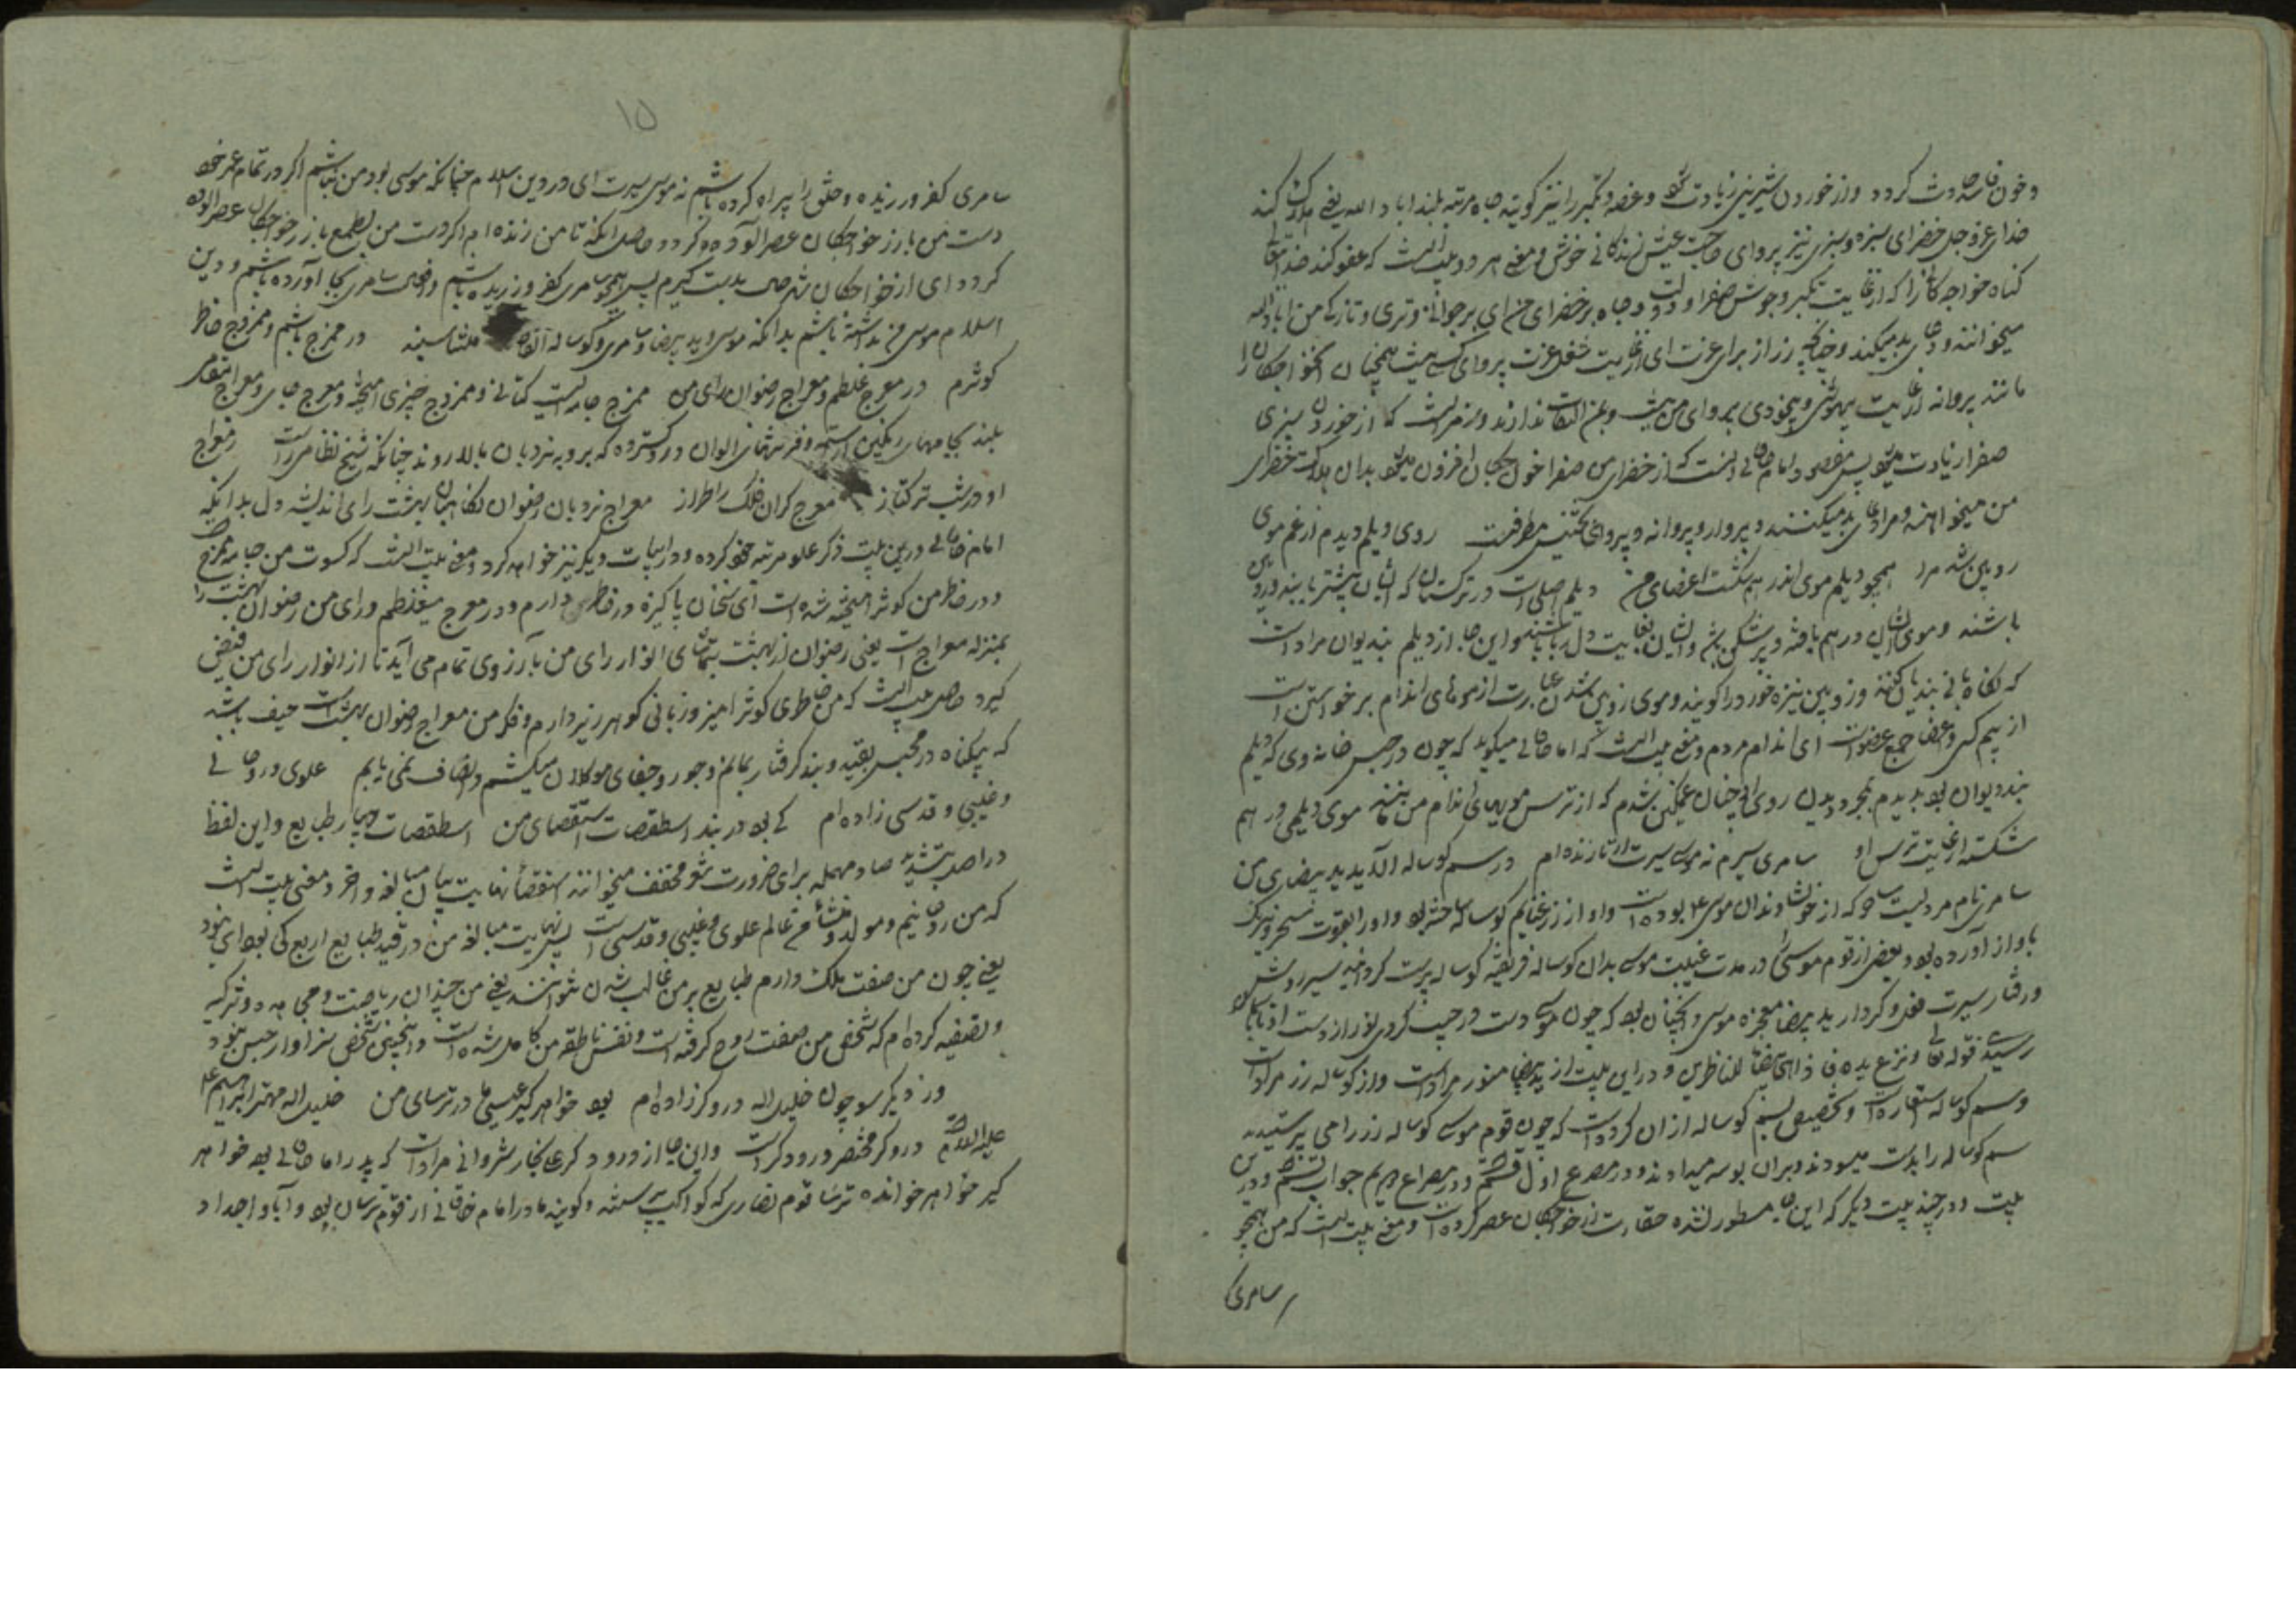 و خون فاسد حادث گردد و از خوردن شیرینی زیادت شود و غصه و تکبر را نیز گویند جاه مرتبه بلند اباد الله یعنی هلاک کند
خدای عز و جل خضرای سبزه و سبزی نیز پروای صاحب عیش زندگانی خوش و معنی هر دو بیت آنست که عفو کند خدا تعالی
گناه خواجگان را که از غایت تکبر و جوش صفرا و دولت و جاه بر خضرای من ای بر جوانی و تری و تازگی من اباد الله
میخوانند و دعای بد میکنند و چنانکه زر از برای عزت ای از غایت شغل عزت پروای کسی نیست همچنان آن خواجگان را
مانند پروانه از غایت بیهوشی و بیخودی پروای من نیست و بمن التفات ندارند و رمز آنست که از خوردن سبزی
صفرا زیادت میشود پس مقصود امام خاقانی آنست که از خضرای من صفرا خواجگان افزون میشود بدان هلاکت خضرای
من میخواهند و مرا دعای بد میکنند و پروار و پروانه و پروای تجنیس مطرفست روی دیلم دیدم از غم موی
زوبین شد مرا همچو دیلم موی اندر هم شکست اعضای من دیلم اصلی است در ترکستان که ایشان بیشتر پاینده دربن
باشند و موی ایشان در هم بافته و پرشکن بود و ایشان بغایت دل ربا باشند و این جا از دیلم بندیوان مراد است
که نگاهبانی بندیان کنند و زوبین نیزه خورد را گویند و موی زوبین شدن عبارت از موهای اندام برخواستن است
از بیم کسی و اعضا جمع عضو است ای اندام مردم و معنی بیت آنست که امام خاقانی میگوید که چون در حبس خانه روی که دیلم
بندیوان بود بدیدم بمجرد دیدن روی او چنان غمگین شدم که از ترس مویهای اندام من بمثابه موی دیلمی در هم
شکسته از غایت ترس او سامری سیرم نه موسی سیرت ار تا زنده ام در سم گوساله الاید ید بیضای من
سامری نام مردیست ساحر که از خویشاوندان موسی ع بوده است و او از زر غنایم گوساله ساخته بود و او را بقوت سحر و نیرنگ
باواز آورده بود و بعضی از قوم موسی در مدت غیبت موسی بدان گوساله فریفته گوساله پرست گردانید سیر روش
و رفتار سیرت فعل و کردار ید بیضا معجزه موسی و آنچنان بود که چون موسی دست در جیب کردی نور از دست او تا بالا
رسیدی قوله تعالی و نزع یده فاذا هی بیضا للناظرین و در این بیت از ید بیضا منور مراد است و از گوساله زر مراد است
و سم گوساله استعارت است و تخصیص سم گوساله از آن کرده است که چون قوم موسی گوساله زر را می پرستیدند
سم گوساله را بدست میسودند و بر آن بوسه میدادند و در مصرع اول قسم و در مصراع دویم جواب قسم و درین
بیت و در چند بیت دیگر که این جا مسطور نشده حقارت زر خواجگان عصر کرده است و معنی بیت آنست که من همچو
سامری
۱۵
سامری کفر ورزیده و خلق را بیراه کرده باشم نه موسی سیرت ای در دین اسلام چنانکه موسی بود من نباشم اگر در تمام عمر خود
دست من با زر خواجگان عصر آلوده گردد حاصل آنکه تا من زنده ام اگر دست من بطمع با زر خواجگان عصر آلوده
گردد ای از خواجگان شرحی بدست گیرم پس همچو سامری کفر ورزیده باشم و افعال سامری بجا آورده باشم و دین
اسلام موسی من نداشته باشم بدانکه موسی و ید بیضا و سامری و گوساله الفاظ متناسبند در ممزج باشم و ممزوج خاطر
کوثرم در معرج غلطم و معراج رضوان رای من ممزج جامه ایست کتانی و ممزوج چیزی آمیخته و معرج جای و معراج
بلند بجامهای رنگین آراسته و فرشهای الوان در و گسترده که برو بنردبان بالا روند چنانکه شیخ نظامی راست ز معراج
او در شب ترکتاز معرج گران فلک را طراز معراج نردبان رضوان نگاهبان بهشت رای اندیشه دل بدانکه
امام خاقانی درین بیت ذکر علو مرتبه خود کرده و در ابیات دیگر نیز خواهد کرد و معنی بیت آنست که کسوت من جامه ممزج
و در خاطر من کوثر آمیخته شده است ای سخنان پاکیزه در خاطر دارم و در معرج میغلطم و رای من رضوان بهشت را
بمنزله معراج است یعنی رضوان از بهشت بتماشای انوار رای من بآرزوی تمام می آید تا از انوار رای من فیض
گیرد حاصل بیت آنست که من خاطری کوثر آمیز و زبانی گوهر ریز دارم و فکر من معراج رضوان بهشت است حیف باشد
که بیگناه در محبس بقید و بند گرفتار بمانم و جور و جفای موکلان میکشم و انصاف نمی یابم علوی و روحانی
و غیبی و قدسی زاده ام کی بود در بند اسطقصات استقصای من اسطقصات چهار طبایع و این لفظ
در اصل بتشدید صاد مهمله برای ضرورت شعر مخفف میخوانند استقصا نهایت بیان مبالغه و آخر و معنی بیت آنست
که من روحانیم و مولد و منشاء من عالم علوی و غیبی و قدسی است پس نهایت مبالغه من در قید طبایع اربع کی بود ای نبود
یعنی چون من صفت ملک دارم طبایع بر من غالب شدن نتوانند یعنی من چندان ریاضت و مجاهده و تزکیه
و تصفیه کرده ام که شخص من صفت روح گرفته است و نفس ناطقه من کامل شده است و اینچنین شخص سزاوار حبس نبود
ور ز دیگر سو چون خلیل الله دروگر زاده ام بود خواهرگیر عیسی مادر ترسای من خلیل الله مهتر ابراهیم
علیه السلام دروگر مختصر درودگر است و این جا از درودگر علی نجار شروانی مراد است که پدر امام خاقانی بود خواهر
گیر خواهر خوانده ترسا قوم نصاری که کواکب پرستند و گویند مادر امام خاقانی از قوم ترسایان بود و آبا و اجداد